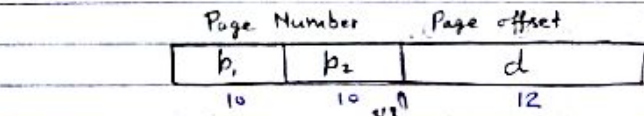 Page Number Page offset
p₁ p₂ d
10 10 12